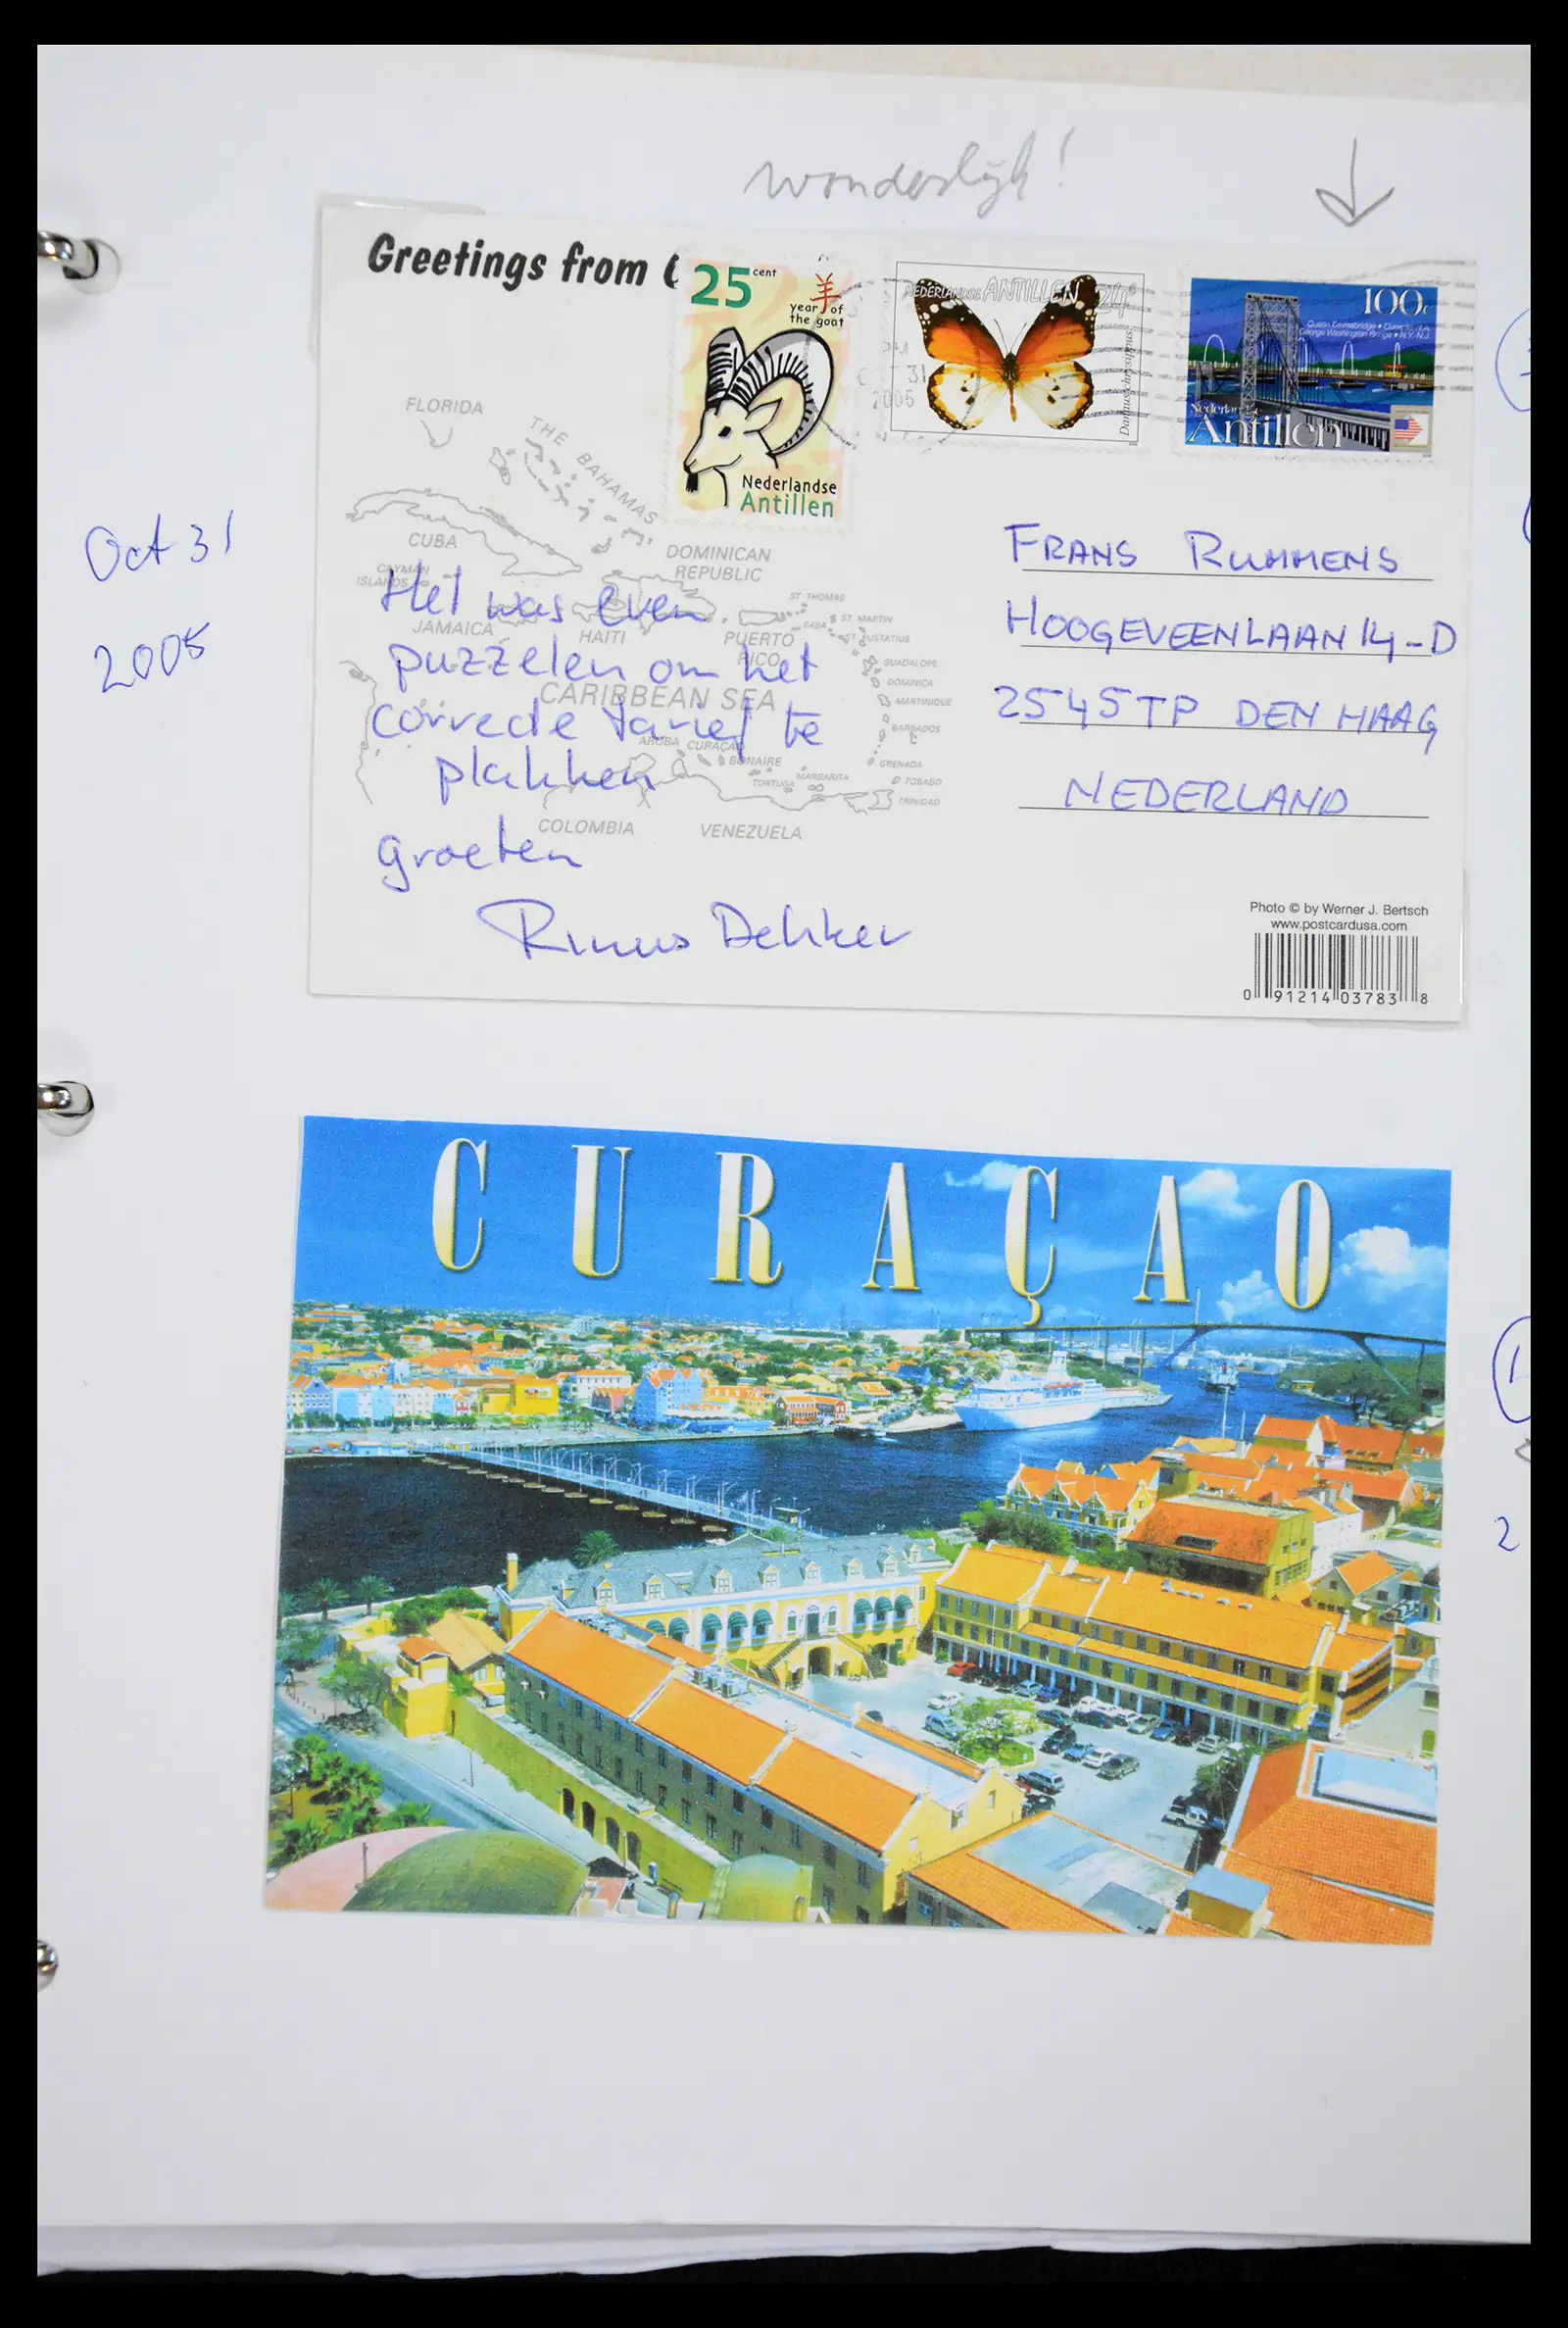 wonderlijk!
Greetings from
25 cent
羊
year of
the goat
Nederlandse
Antillen
NEDERLANDSE ANTILLEN 24c
Danaus chrysippus
OCT 31
2006
100c
Queen Emmabridge • Curaçao, N.A.
George Washington Bridge • N.Y.-N.J.
Nederlandse
Antillen
Oct 31
2005
FLORIDA
THE BAHAMAS
CUBA
CAYMAN
ISLANDS
DOMINICAN
REPUBLIC
JAMAICA
HAITI
PUERTO
RICO
ST THOMAS
SABA
ST MARTIN
ST EUSTATIUS
GUADALOPE
DOMINICA
MARTINIQUE
CARIBBEAN SEA
BARBADOS
ARUBA CURAÇAO
BONAIRE
TORTUGA
MARGARITA
GRENADA
TOBAGO
TRINIDAD
COLOMBIA
VENEZUELA
Het was even
puzzelen om het
correcte tarief te
plakken
groeten
Rinus Dekker
FRANS RUMMENS
HOOGEVEENLAAN 14-D
2545TP DEN HAAG
NEDERLAND
Photo © by Werner J. Bertsch
www.postcardusa.com
0 91214 03783 8
CURAÇAO
1
2